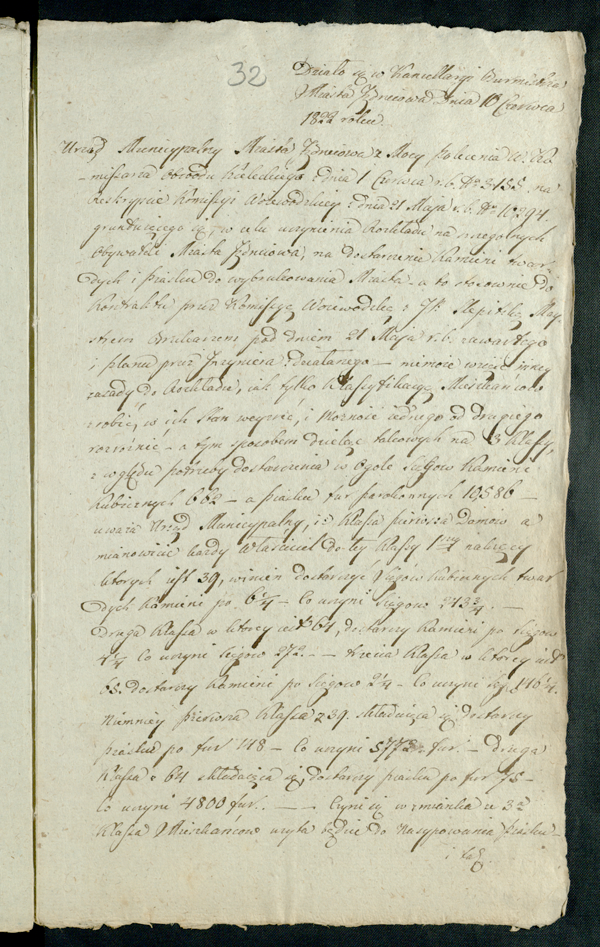 32
Działo się w Kancellaryi Burmistrza
Miasta Jędrzejowa Dnia 10 Czerwca
1822 roku.
Urząd Municypalny Miasta z Mocy Polecenia W. Ko-
-missarza Obwodu Kieleckiego z dnia 1 Czerwca r. b. No 3455. na
Reskrypcie Komisyi Wojewódzkiey z dnia 21 Maja r. b. No 10294
gruntującego się, w celu uczynienia Rozkładu na szczególnych
Obywateli Miasta na dostarczenie Kamieni twar-
dych i piasku do wybrukowania Miasta – a to stosownie do
Kontraktu przez Komissyą Wojewódzką z JP. May-
strem Brukarzem pod dniem 21 Maja r. b. zawartego
i planu przez Inżyniera działanego – niemoże wziąść inney
zasady do Rozkładu, jak tylko Klasyfikacyą Mieszkańców
zrobić, w ich Stan weyrzeć, i Możność jednego od drugiego
rozróżnić – a tym sposobem dzieląc takowych na 3 Klassy,
z względu potrzeby dostarczenia w Ogóle Sążow Kamieni
Kubicznych 662 – a piasku fur parokonnych 10,586 –
uważa Urząd Municypalny, iż Klasa pierwsza Domów a
mianowicie każdy Właściciel do tey Klassy 1szey należący
których jest 39, winien dostarczyć Sągów Kubicznych twar-
dych Kamieni po 6 1/4 – Co uczyni Sągow 243 3/4. –
Druga Klassa w którey jest 64, dostarczy Kamieni po Sągow
4 1/4 Co uczyni Sągow 272. – – trzecia Klassa w którey jest
65. dostarczy Kamieni po Sągow 2 1/4 – Co uczyni 146 1/4.
Niemniey pierwsza Klassa z 39. składaiąca się dostarczy
piasku po fur 148 – Co uczyni 5772 fur. – druga
Klassa z 64 składaiąca się, dostarczy piasku po fur 75 –
Co uczyni 4800 fur. – – Czyni się wzmianka iż 3cia
Klassa Mieszkańców użyta będzie do Nasypowania piasku –
i tak